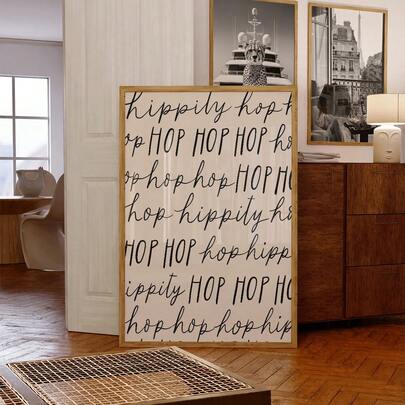 hippity hop h
op HOP HOP HOP ho
ophophop HOP H
hop hippity h
HOP HOP hop hipp
ippity HOP HOP H
hophophophip